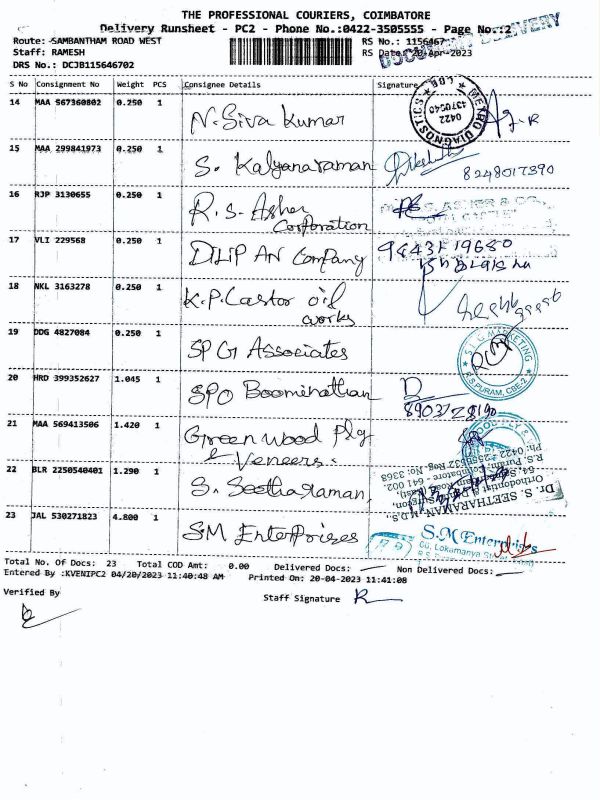 THE PROFESSIONAL COURIERS, COIMBATORE
Delivery Runsheet - PC2 - Phone No.:0422-3505555 - Page No.:2
DOCUMENT DELIVERY
Route: SAMBANTHAM ROAD WEST RS No.: 1156467
Staff: RAMESH RS Date: 20-Apr-2023
DRS No.: DCJB115646702
S No Consignment No Weight PCS Consignee Details Signature
14 MAA 567360802 0.250 1 N. Siva Kumar
METRO DIAGNOSTICS CBE 0422 4370640
15 MAA 299841973 0.250 1 S. Kalyanaraman
8248017390
16 RJP 3130655 0.250 1 R. S. Asher
Corporation
R.S. ASHER & CO.,
17 VLI 229568 0.250 1 DILIP AN Company
18 NKL 3163278 0.250 1 K.P. Castor oil
works
19 DDG 4827084 0.250 1 SPG Associates
S.L.G MARKETING R.S.PURAM, CBE-2
20 HRD 399352627 1.045 1 SPO Boominathan
8903728190
21 MAA 569413506 1.420 1 Greenwood Plg
& Veneers.
22 BLR 2250540401 1.290 1 S. Seetharaman.
Dr. S. SEETHARAMAN, M.D.S.,
23 JAL 530271823 4.800 1 SM Enterprises
S.M Enterprises
Total No. Of Docs: 23 Total COD Amt: 0.00 Delivered Docs: Non Delivered Docs:
Entered By :KVENIPC2 04/20/2023 11:40:48 AM Printed On: 20-04-2023 11:41:08
Verified By
Staff Signature